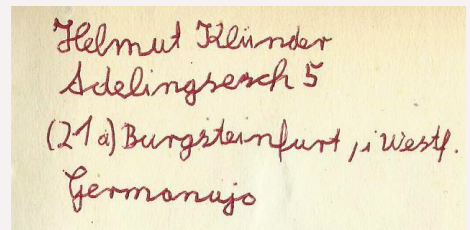 Helmut Klünder
Adelingsesch 5
(21a) Burgsteinfurt, i Westf.
Germanujo